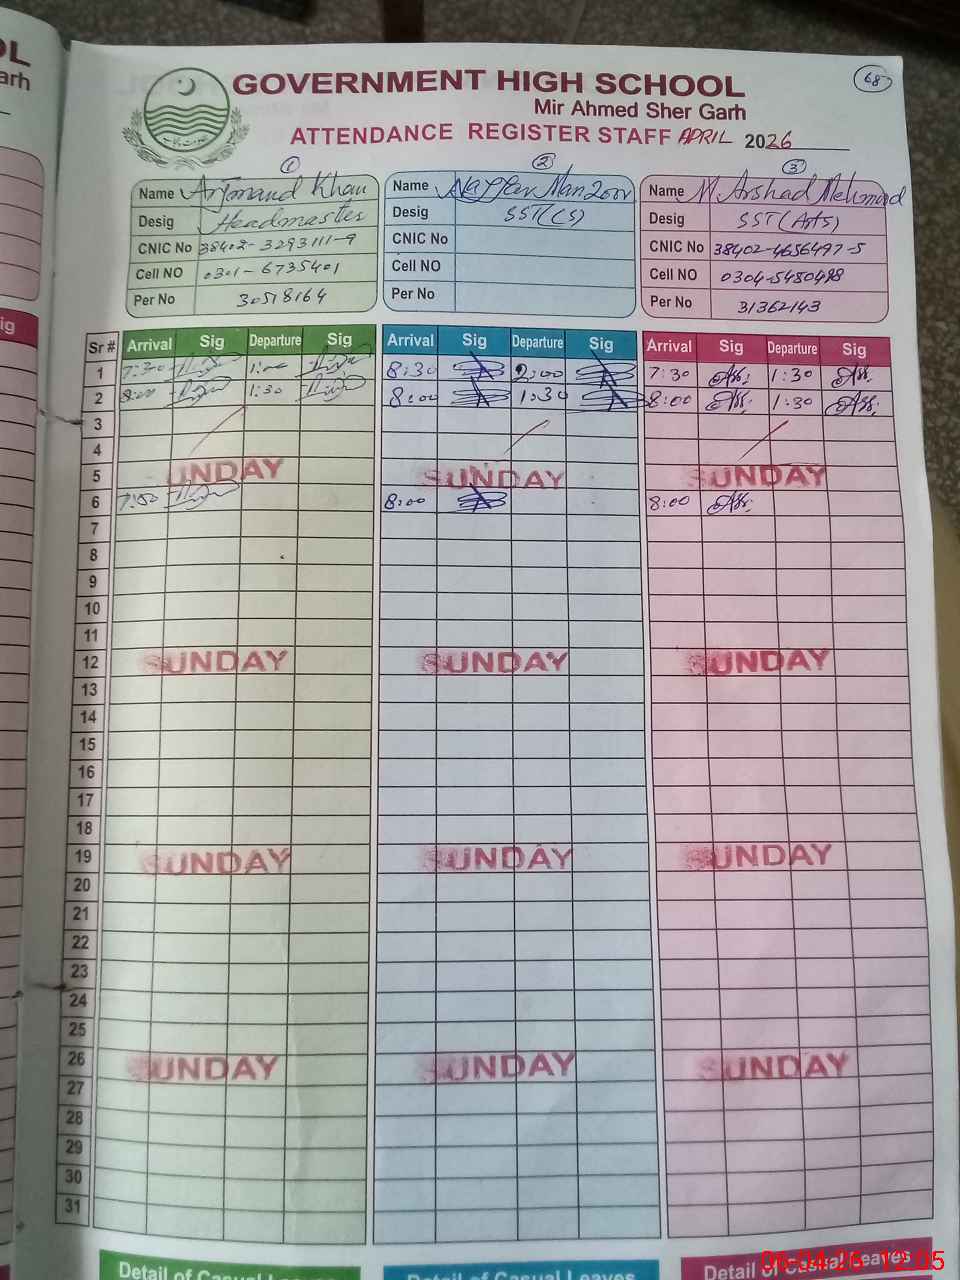 OL
arh
ig
68
GOVERNMENT HIGH SCHOOL
Mir Ahmed Sher Garh
ATTENDANCE REGISTER STAFF APRIL 2026
1
Name Arjmand Khan
Desig Headmaster
CNIC No 38402-3293111-9
Cell NO 0301-6735401
Per No 30518164
2
Name Manzoor
Desig SST(CS)
CNIC No
Cell NO
Per No
3
Name M Arshad Mehmood
Desig SST(Arts)
CNIC No 38402-4656497-5
Cell NO 0304-5480498
Per No 31362143
Sr # Arrival Sig Departure Sig Arrival Sig Departure Sig Arrival Sig Departure Sig
1 7:30 1:00 8:30 2:00 7:30 1:30
2 8:00 1:30 8:00 1:30 8:00 1:30
3
4
5 SUNDAY SUNDAY SUNDAY
6 7:50 8:00 8:00
7
8
9
10
11
12 SUNDAY SUNDAY SUNDAY
13
14
15
16
17
18
19 SUNDAY SUNDAY SUNDAY
20
21
22
23
24
25
26 SUNDAY SUNDAY SUNDAY
27
28
29
30
31
Detail of Casual Leaves Detail of Casual Leaves Detail of Casual Leaves
06-04-26 12:05